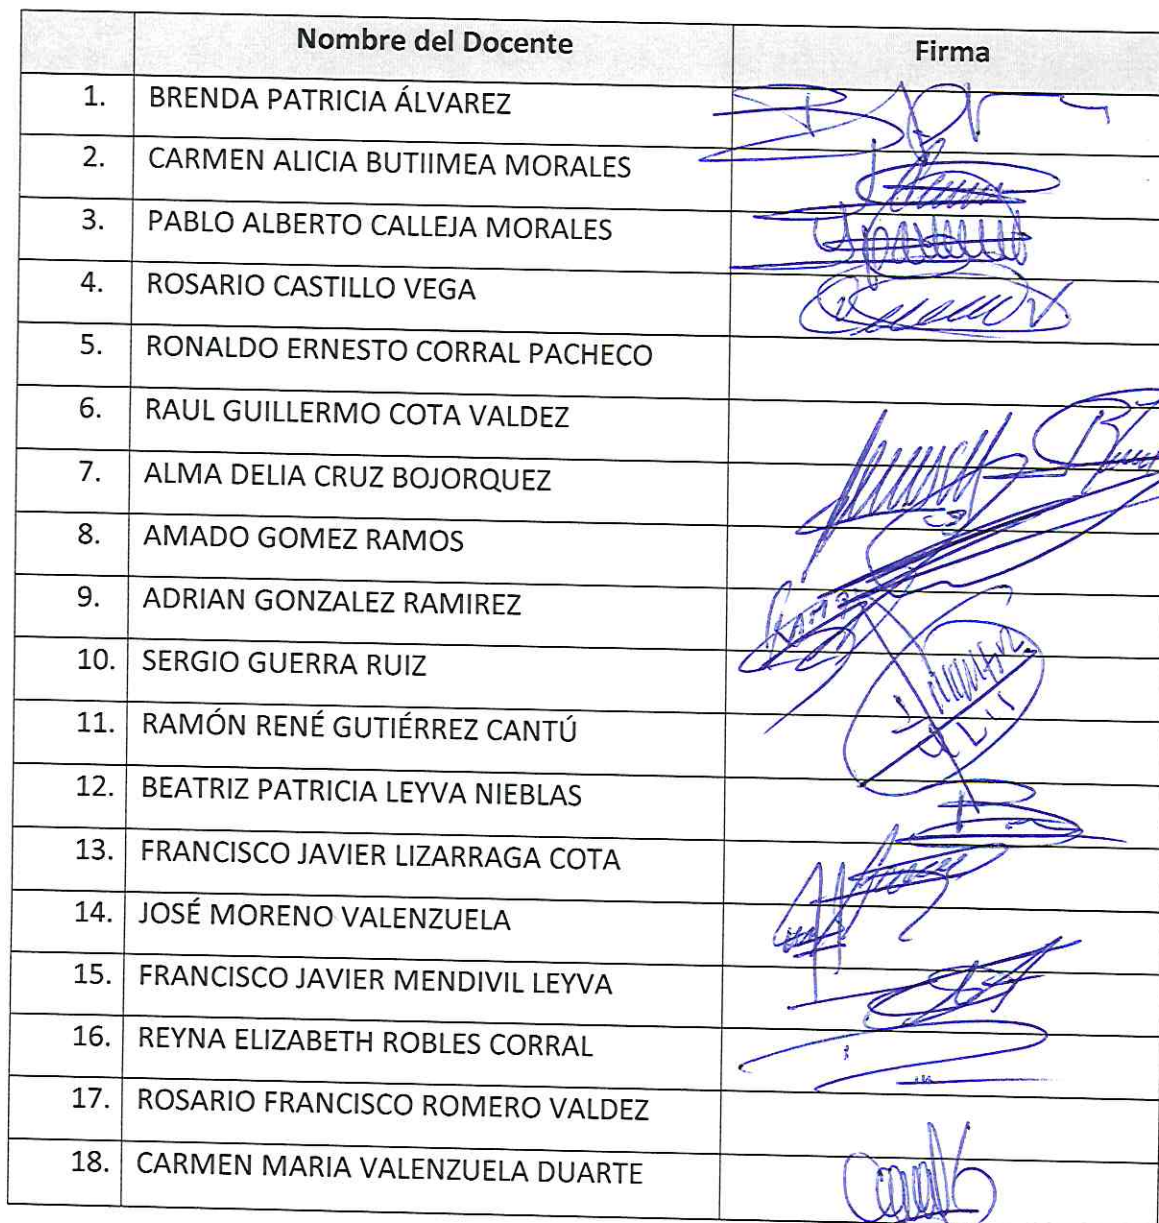 Nombre del Docente Firma
1. BRENDA PATRICIA ÁLVAREZ
2. CARMEN ALICIA BUTIIMEA MORALES
3. PABLO ALBERTO CALLEJA MORALES
4. ROSARIO CASTILLO VEGA
5. RONALDO ERNESTO CORRAL PACHECO
6. RAUL GUILLERMO COTA VALDEZ
7. ALMA DELIA CRUZ BOJORQUEZ
8. AMADO GOMEZ RAMOS
9. ADRIAN GONZALEZ RAMIREZ
10. SERGIO GUERRA RUIZ
11. RAMÓN RENÉ GUTIÉRREZ CANTÚ
12. BEATRIZ PATRICIA LEYVA NIEBLAS
13. FRANCISCO JAVIER LIZARRAGA COTA
14. JOSÉ MORENO VALENZUELA
15. FRANCISCO JAVIER MENDIVIL LEYVA
16. REYNA ELIZABETH ROBLES CORRAL
17. ROSARIO FRANCISCO ROMERO VALDEZ
18. CARMEN MARIA VALENZUELA DUARTE